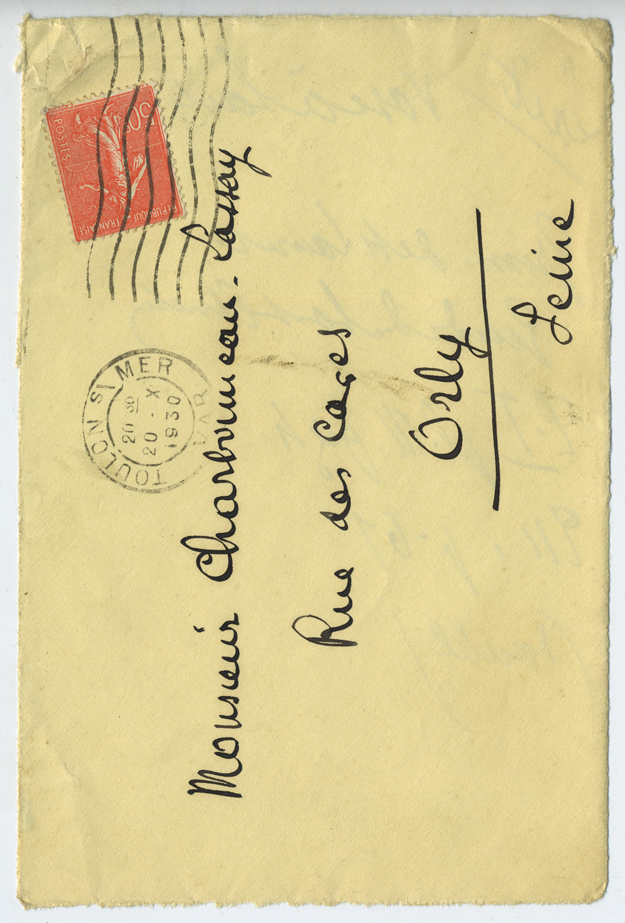 50c
POSTES
REPUBLIQUE FRANÇAISE
TOULON S/ MER
20 30
20 - X
1930
VAR
Monsieur Charbonneau-Lassay
Rue des Cages
Orly
Seine